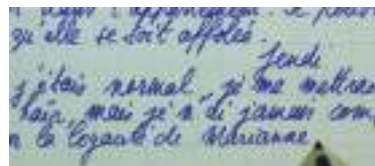 qu'elle se soit affolée.
Jeudi
j'étais normal, je me mettrai
haïr, mais je n'ai jamais com
la loyauté de Marianne